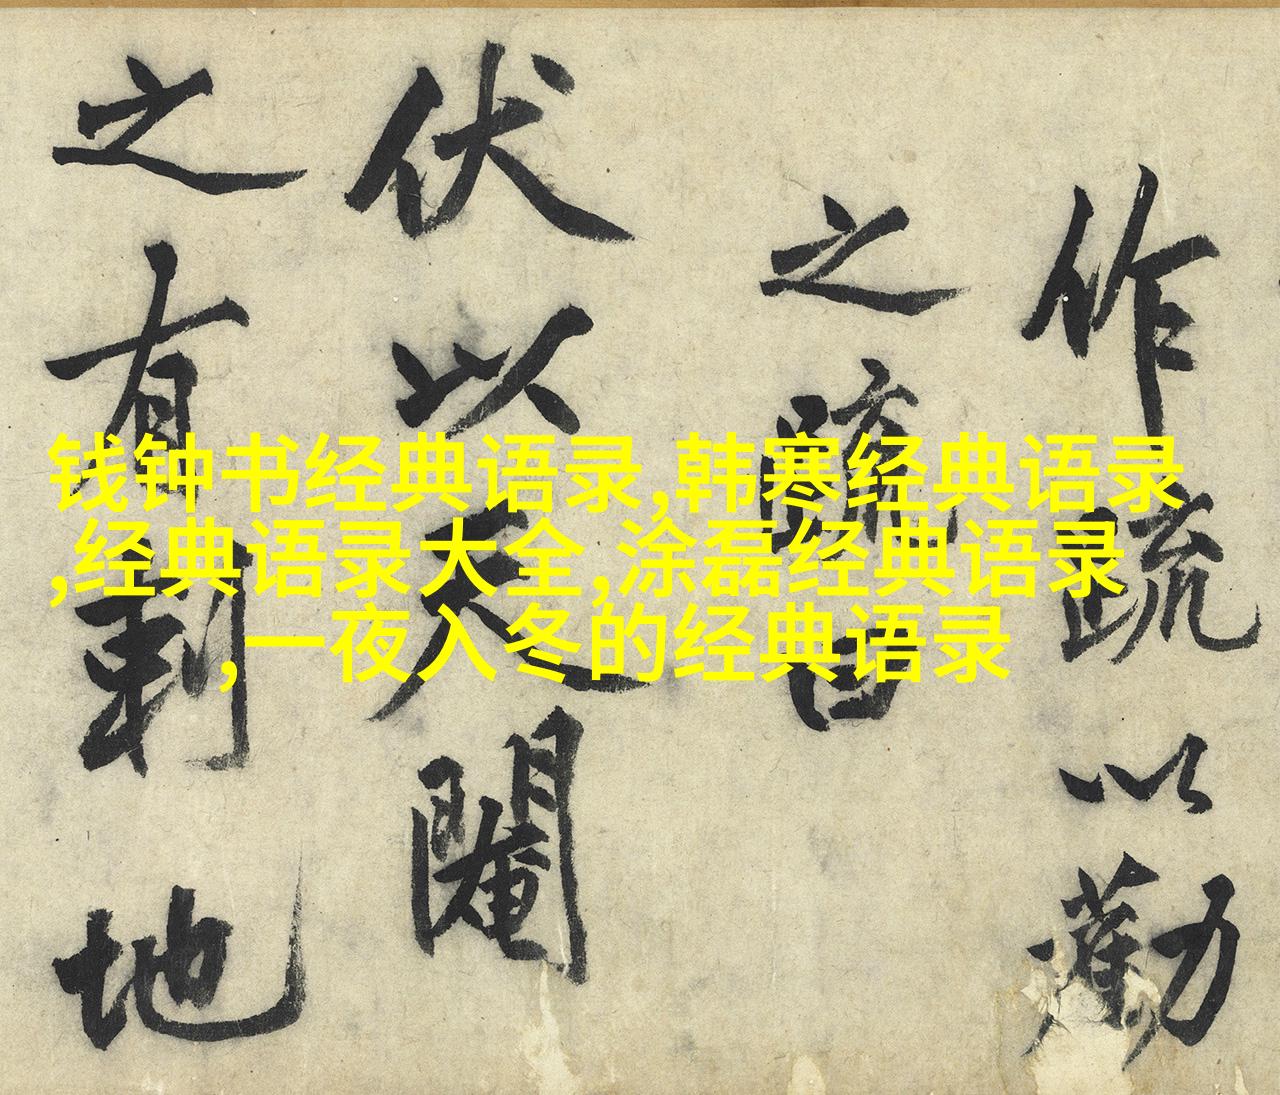 作疏以勸
之疏曰
伏以天閹
之有刺地
钱钟书经典语录,韩寒经典语录
,经典语录大全,涂磊经典语录
,一夜入冬的经典语录